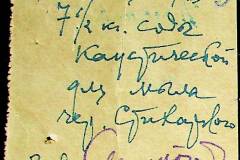 7 1/2 кг. соды
каустической
для мыла
чер. Стикарового